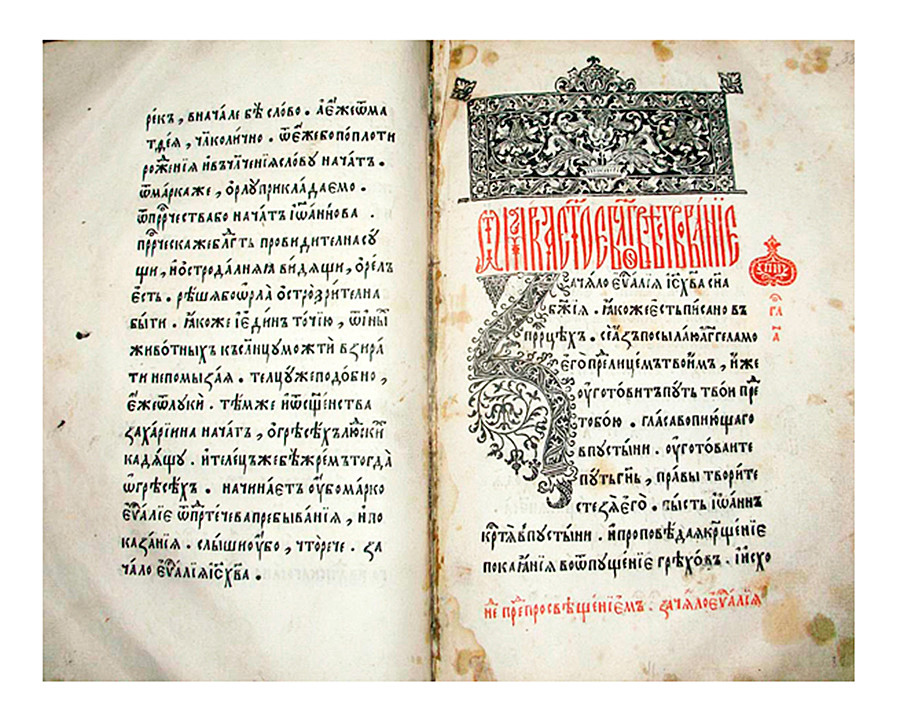 рекъ, вначале бѣ слово. аєжеѿма
тѳея, чл҃колично. ѿєжебопоплоти
рожениӕ ивъчл҃ченіяслову начатъ.
ѿмаркаже, орлуприкладаемо.
ѿпрⷪ҇рчествабо начатъ іѡаннова.
прⷪ҇рческажебл҃гть провидителнасу
щи, иостродалняӕ видящи, орелъ
єсть. рѣшябоѡрла острозрителна
быти. ꙗкоже іединъ точію, ѿины
животныхъ къслн҃цуможти взира
ти непомызая. телцужеподобно,
єжеѿлуки. тѣмже иѿсщ҃енства
захаріина начатъ, огрѣсѣхълюскиⷯ
кадящу. ителецъжебѣжремътогда
ѡгрѣсѣхъ. начинаєтъ оубомарко
єѵⷢ҇аліе ѿпрⷣтечевапребыванія, ипо
казанія. слышиоубо, чторече. за
чало єѵⷢ҇аліяіс҃хв҃а.
зачяло єѵⷢ҇аліӕ іс҃хв҃а сн҃а
бж҃ія. ꙗкожеєстьписано въ
прⷪ҇рцѣхъ. сеазъпосылаюагг҃еламо
єгопреⷣлицемътвоимъ, иже
оуготовитъпуть твои преⷣ
тобою. гласъвопиющаго
впустыни. оуготоваите
путьгн҃ь, правы творите
стезяєго. бысть іѡаннъ
крⷭ҇тѧ впустыни. ипроповѣдаякрщ҃еніє
покаꙗнія воѿпущеніє грѣховъ. иисхо
неⷣ преⷣпросвѣщеніємъ. зачялоєѵⷢ҇алія